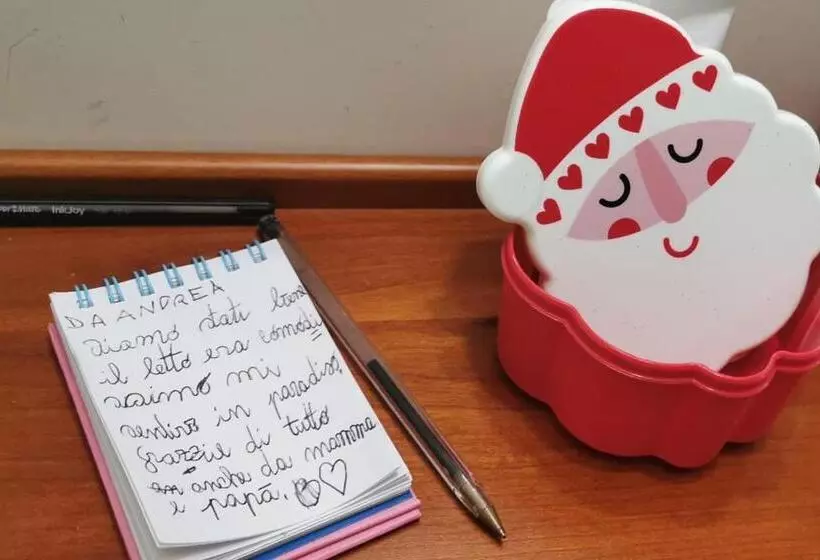 InkJoy
DA ANDREA
siamo stati bene
il letto era comodi
saimo mi
sentivo in paradiso
grazzie di tutto
anche da mamma
e papà.